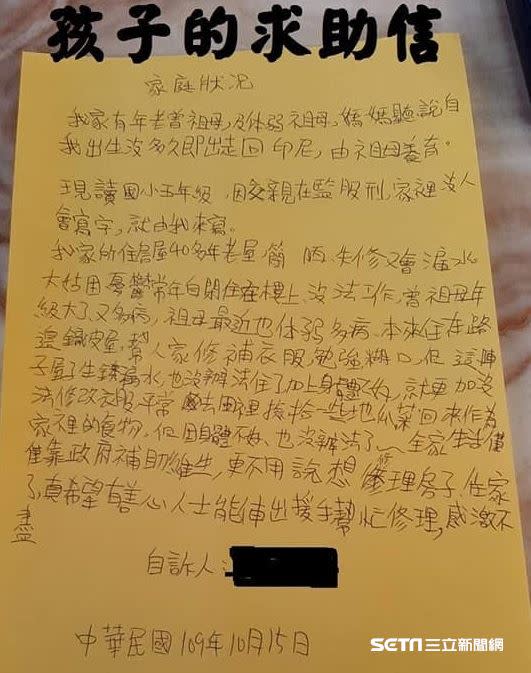 孩子的求助信
家庭狀況
我家有年老曾祖母,及体弱祖母,媽媽聽說自
我出生沒多久即出走回印尼,由祖母養育。
現讀國小五年級,因父親在監服刑,家裡沒人
會寫字,就由我來寫。
我家所住房屋40多年老屋,簡陋失修又會漏水。
大姑因憂鬱常年自閉住在樓上,沒法工作,曾祖母年
級大了又多病,祖母最近也体弱多病,本來住在路
邊鐵皮屋,幫人家修補衣服勉強糊口,但這陣
子屋子生銹漏水,也沒辦法住了加上身體不好,就更加沒
法修改衣服平常去田裡撿拾一些地瓜菜回來作為
家裡的食物,但因身體不好,也沒辦法了,全家生活僅
僅靠政府補助維生,更不用說想修理房子,住家
了,真希望有善心人士能伸出援手幫忙修理,感激不
盡
自訴人:
中華民國109年10月15日
SETN三立新聞網